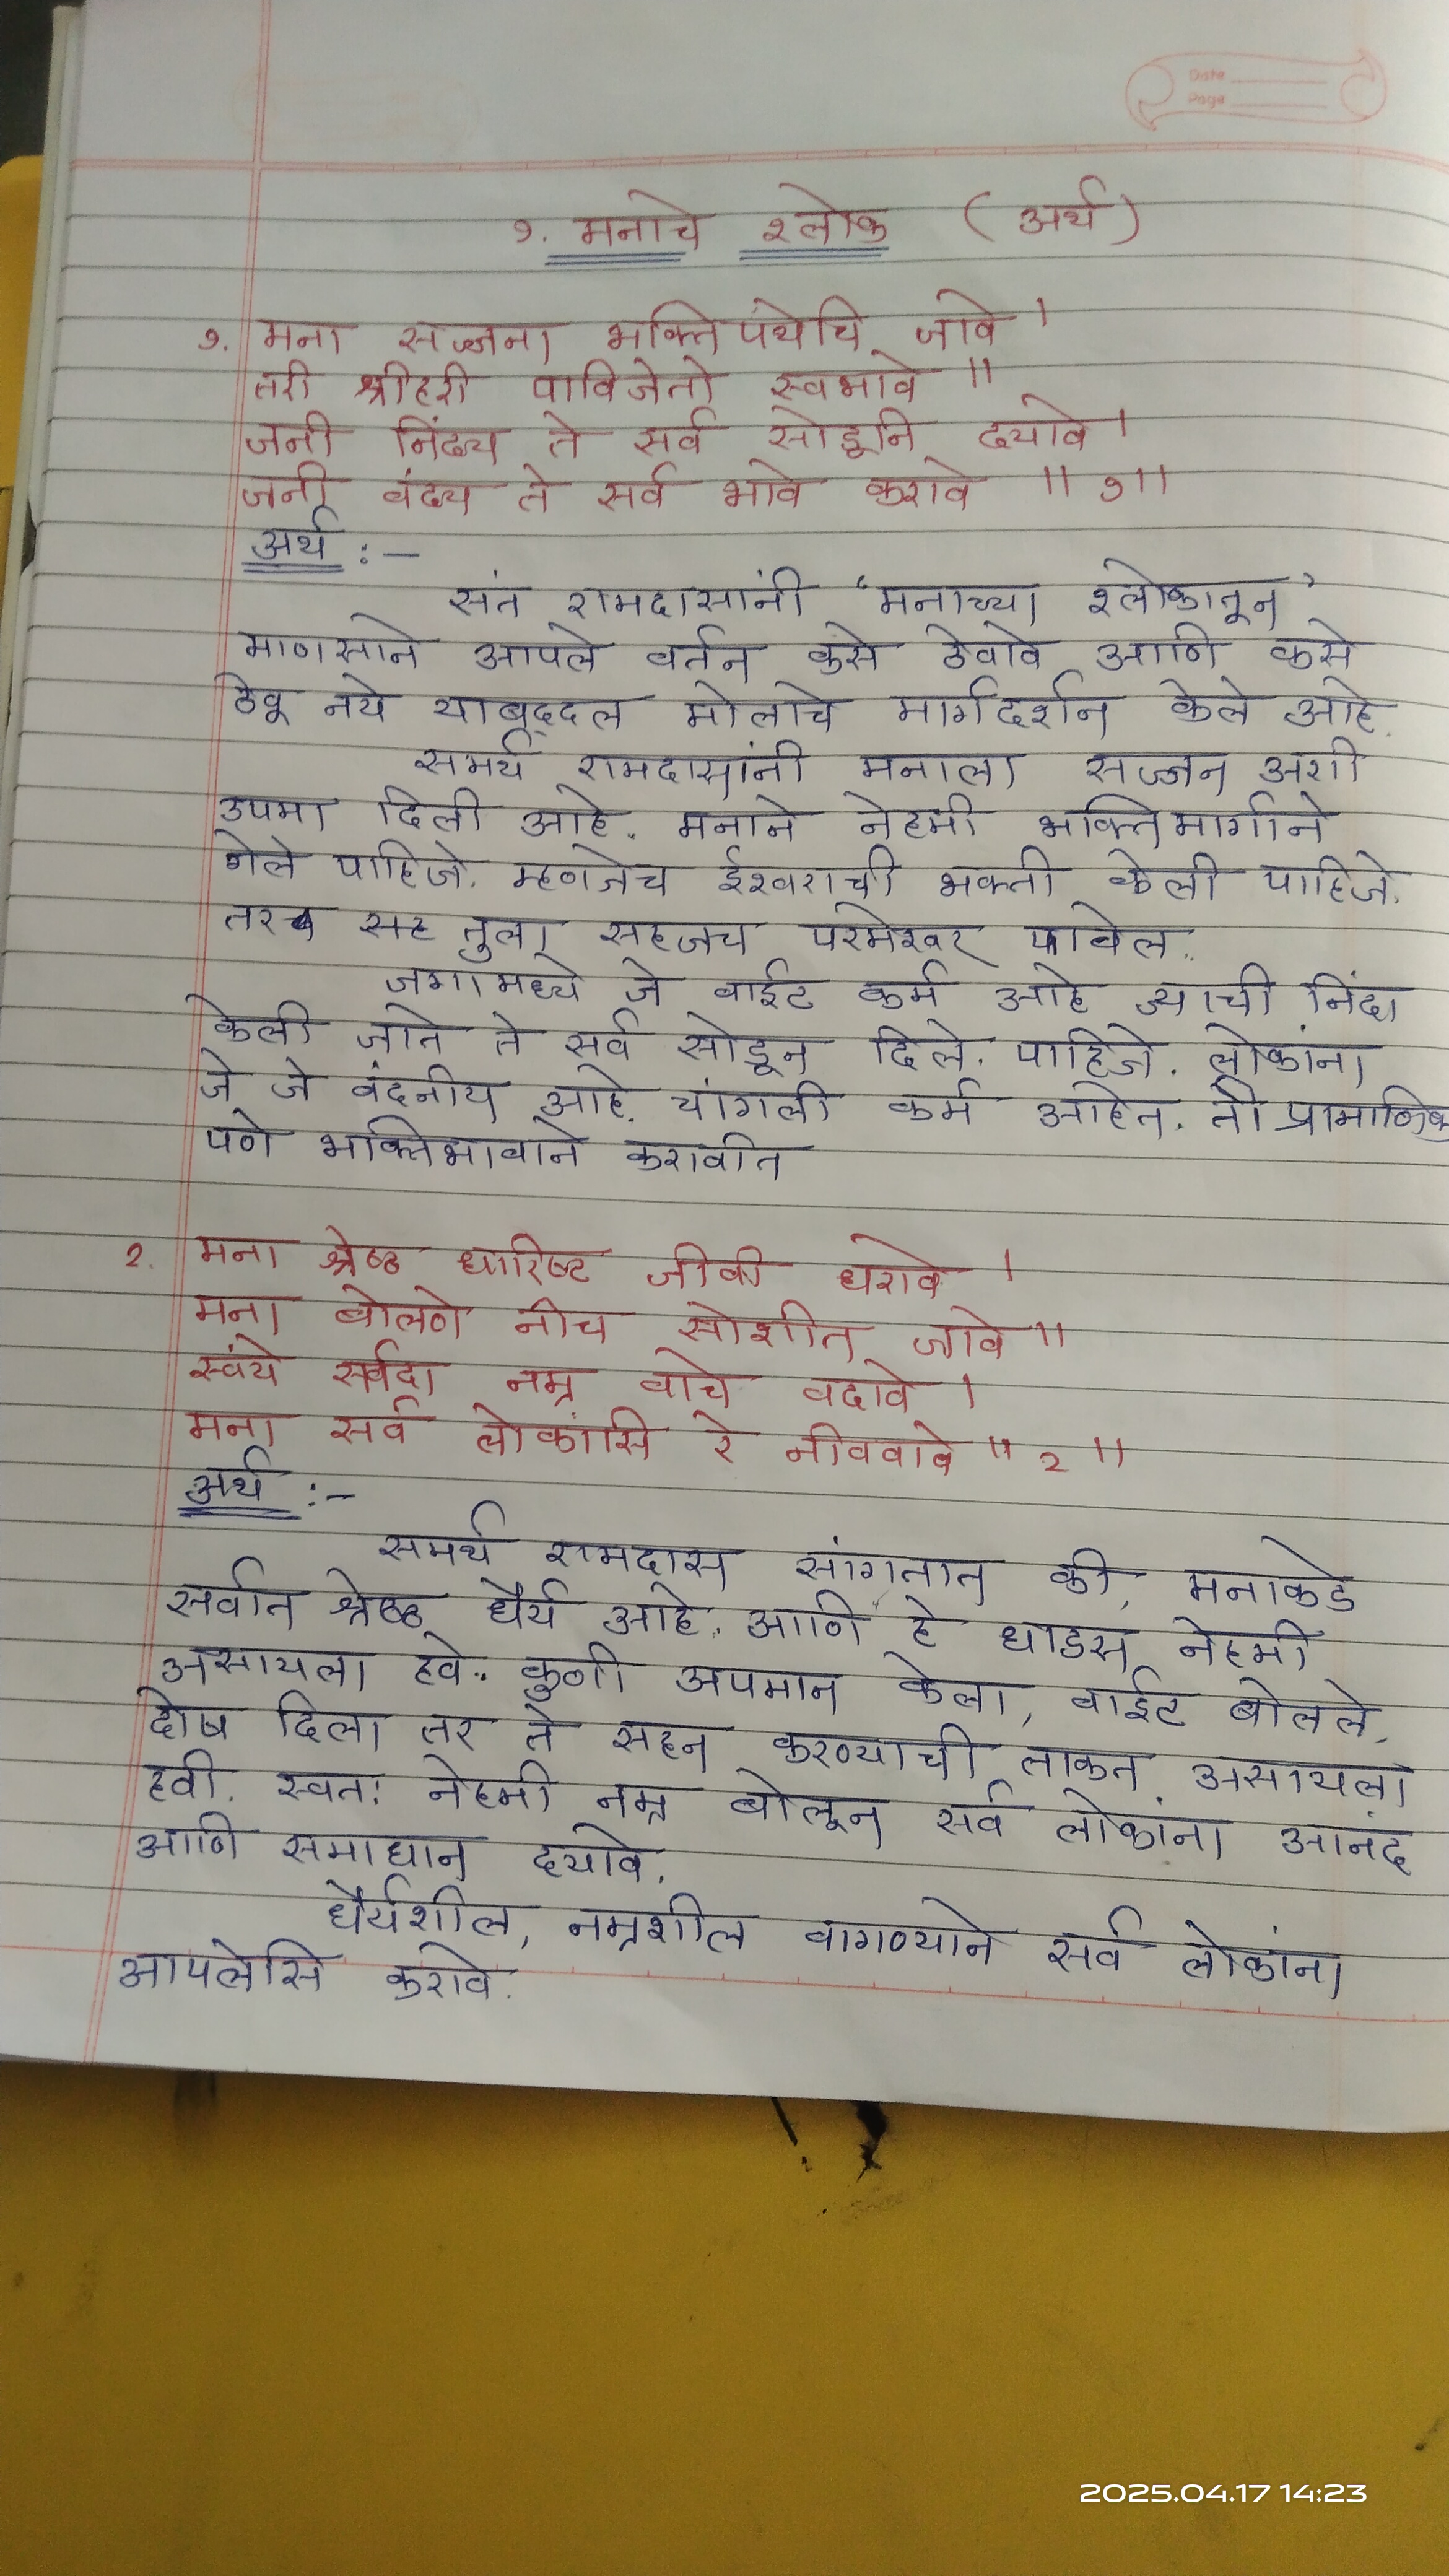 Date
Page
१. मनाचे श्लोक (अर्थ)
१. मना सज्जना भक्तिपंथेचि जावे ।
तरी श्रीहरी पाविजेतो स्वभावे ॥
जनी निंदय ते सर्व सोडूनि दयावे ।
जनी वंदय ते सर्व भावे करावे ॥ १॥
अर्थ :-
संत रामदासांनी 'मनाच्या श्लोकातून'
माणसाने आपले वर्तन कसे ठेवावे आणि कसे
ठेवू नये याबद्‌दल मोलाचे मार्गदर्शन केले आहे.
समर्थ रामदासांनी मनाला सज्जन अशी
उपमा दिली आहे. मनाने नेहमी भक्तिमार्गाने
गेले पाहिजे. म्हणजेच ईश्वराची भक्ती केली पाहिजे.
तरच सह तुला सहजच परमेश्वर पावेल.
जगामध्ये जे वाईट कर्म आहे ज्याची निंदा
केली जाते ते सर्व सोडून दिले. पाहिजे. लोकांना
जे जे वंदनीय आहे. चांगली कर्म आहेत. ती प्रामाणिक
पणे भक्तिभावाने करावीत
२. मना श्रेष्ठ धारिष्ट जीवी धरावे ।
मना बोलणे नीच सोशीत जावे ॥
स्वंये सर्वदा नम्र वाचे वदावे ।
मना सर्व लोकांसि रे नीववावे ॥ २ ॥
अर्थ :-
समर्थ रामदास सांगतात की, मनाकडे
सर्वात श्रेष्ठ धैर्य आहे. आणि हे धाडस नेहमी
असायला हवे. कुणी अपमान केला, वाईट बोलले,
दोष दिला तर ते सहन करण्याची ताकत असायला
हवी. स्वतः नेहमी नम्र बोलून सर्व लोकांना आनंद
आणि समाधान दयावे.
धैर्यशील, नम्रशील वागण्याने सर्व लोकांना
आपलेसि करावे.
2025.04.17 14:23